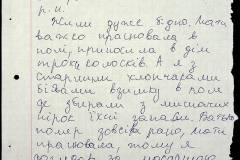 р. н.
Жили дуже бідно. Мати
важко працювала в
полі, приносила в дім
трохи колосків. А я з
старшими хлопчиками
бігали взимку в поле
де збирали з мишачих
нірок їхні запаси. Батько
помер зовсім рано, мати
працювала, тому я